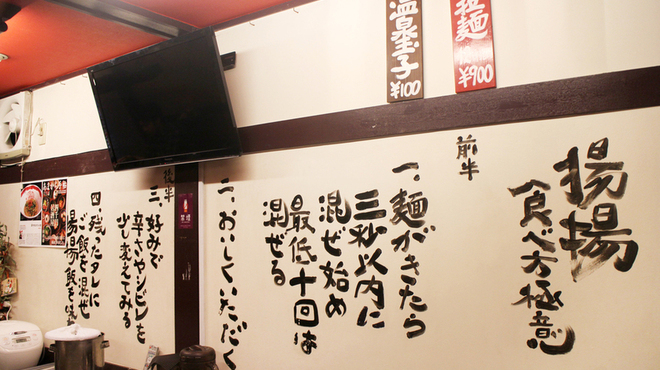 温泉玉子
¥100
拉麺
¥900
揚揚
(食べ方極意)
前半
一、麺がきたら
三秒以内に
混ぜ始め
最低十回は
混ぜる
二、おいしくいただく
後半
三、好みで
辛さやシビレを
少し変えてみる
四、残ったタレに
ご飯を混ぜ
揚揚飯を味